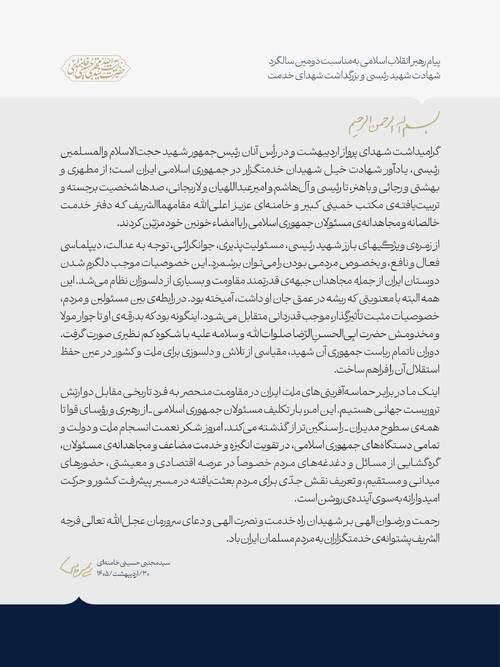 پیام رهبر انقلاب اسلامی به‌مناسبت دومین سالگرد
شهادت شهید رئیسی و بزرگداشت شهدای خدمت
بسم الله الرحمن الرحیم
گرامیداشت شهدای پرواز اردیبهشت و در رأس آنان رئیس‌جمهور شهید حجت‌الاسلام والمسلمین
رئیسی، یادآور شهادت خیل شهیدان خدمتگزار در جمهوری اسلامی ایران است؛ از مطهری و
بهشتی و رجائی و باهنر تا رئیسی و آل‌هاشم و امیرعبداللهیان و لاریجانی، صدها شخصیت برجسته و
تربیت‌یافته‌ی مکتب خمینی کبیر و خامنه‌ای عزیز اعلی‌الله مقامهماالشریف که دفتر خدمت
خالصانه و مجاهدانه‌ی مسئولان جمهوری اسلامی را با امضاء خونین خود مزیّن کردند.
از زمره‌ی ویژگیهای بارز شهید رئیسی، مسئولیت‌پذیری، جوانگرائی، توجه به عدالت، دیپلماسی
فعال و نافع، و بخصوص مردمی بودن را می‌توان برشمرد. این خصوصیات موجب دلگرم شدن
دوستان ایران از جمله مجاهدان جبهه‌ی قدرتمند مقاومت و بسیاری از دلسوزان نظام می‌شد. این
همه البته با معنویتی که ریشه در عمق جان او داشت، آمیخته بود. در رابطه‌ی بین مسئولین و مردم،
خصوصیات مثبت تأثیرگذار، موجب قدردانی متقابل می‌شود. اینگونه بود که بدرقه‌ی او تا جوار مولا
و مخدومش حضرت ابی‌الحسن‌الرّضا صلوات‌الله و سلامه علیه با شکوه کم نظیری صورت گرفت.
دوران ناتمام ریاست جمهوری آن شهید، مقیاسی از تلاش و دلسوزی برای ملت و کشور در عین حفظ
استقلال آن را فراهم ساخت.
اینک ما در برابر حماسه‌آفرینی‌های ملت ایران در مقاومت منحصر به فرد تاریخی مقابل دو ارتش
تروریست جهانی هستیم. این امر، بار تکلیف مسئولان جمهوری اسلامی ـ از رهبری و رؤسای قوا تا
همه‌ی سطوح مدیران ـ را سنگین‌تر از گذشته می‌کند. امروز شکر نعمت انسجام ملت و دولت و
تمامی دستگاه‌های جمهوری اسلامی، در تقویت انگیزه و خدمت مضاعف و مجاهدانه‌ی مسئولان،
گره‌گشایی از مسائل و دغدغه‌های مردم خصوصاً در عرصه اقتصادی و معیشتی، حضورهای
میدانی و مستقیم، و تعریف نقش جدّی برای مردم بعثت‌یافته در مسیر پیشرفت کشور و حرکت
امیدوارانه به‌سوی آینده‌ی روشن است.
رحمت و رضوان الهی بر شهیدان راه خدمت و نصرت الهی و دعای سرورمان عجل‌الله تعالی فرجه
الشریف پشتوانه‌ی خدمتگزاران به مردم مسلمان ایران باد.
سیدمجتبی حسینی خامنه‌ای
۳۰/اردیبهشت/۱۴۰۵